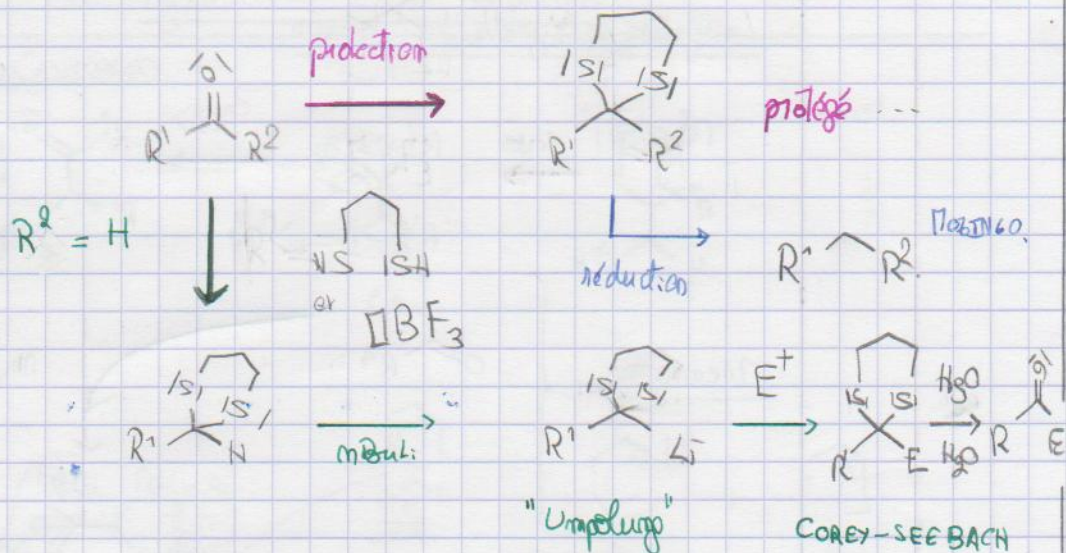 protection
|O|
|S| |S|
R¹ R²
R¹ R²
protégé ...
R² = H
HS |SH
et □BF₃
réduction
R¹ R²
MOZINGO.
|S| |S|
R¹ H
nBuLi
|S| |S|
R¹ Li
E⁺
|S| |S|
R E
HgO
H₂O
|O|
R E
"Umpolung"
COREY-SEEBACH